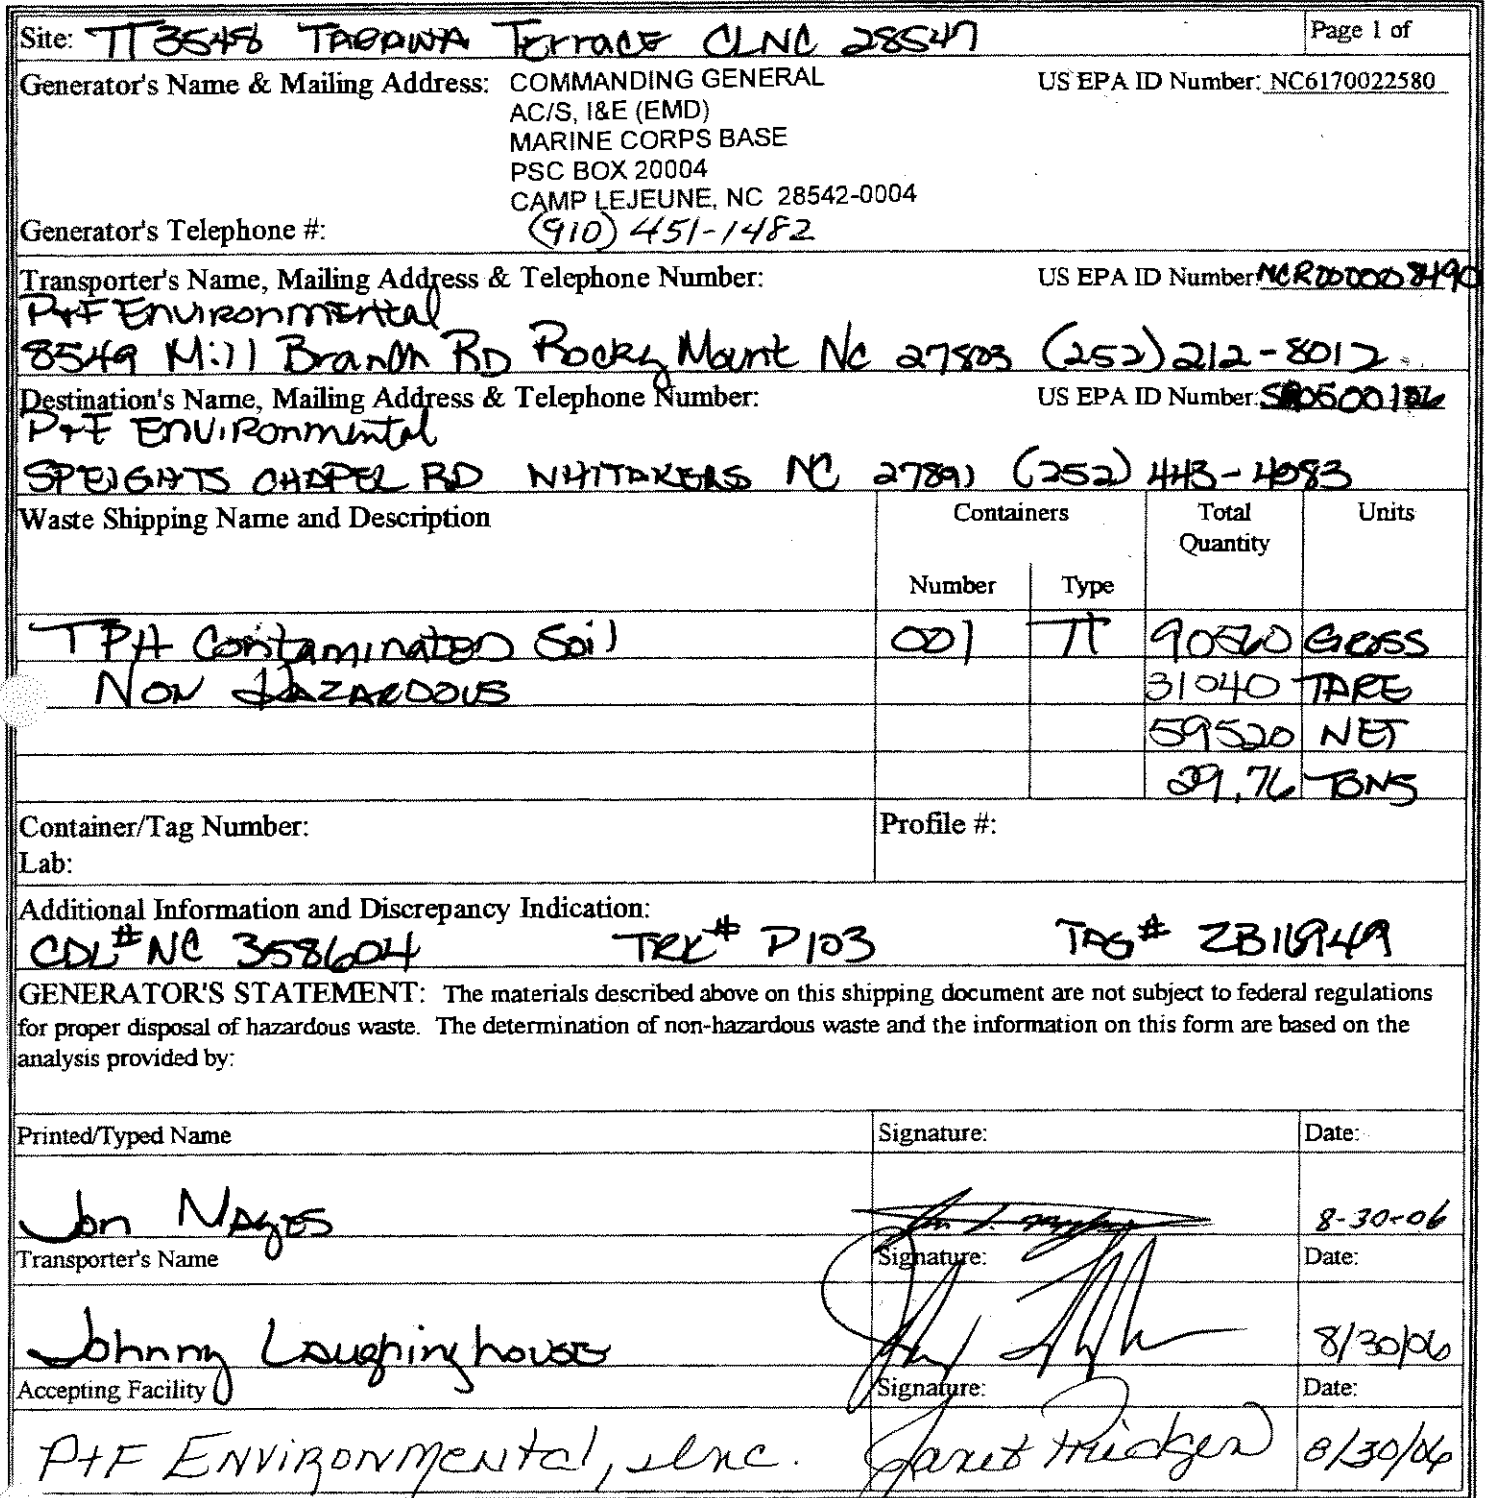 Site: TT3548 TARAWA Terrace CLNC 28547 Page 1 of
Generator's Name & Mailing Address: COMMANDING GENERAL US EPA ID Number: NC6170022580
AC/S, I&E (EMD)
MARINE CORPS BASE
PSC BOX 20004
CAMP LEJEUNE, NC 28542-0004
Generator's Telephone #: (910) 451-1482
Transporter's Name, Mailing Address & Telephone Number: US EPA ID Number: NCR000008490
P+F Environmental
8549 Mill Branch RD Rocky Mount NC 27803 (252) 212-8012
Destination's Name, Mailing Address & Telephone Number: US EPA ID Number:
P+F Environmental
SPEIGHTS CHAPEL RD WHITAKERS NC 27891 (252) 443-4083
Waste Shipping Name and Description Containers Total Quantity Units
Number Type
TPH Contaminated Soil 001 TT 90560 GROSS
NON HAZARDOUS 31040 TARE
59520 NET
29.76 TONS
Container/Tag Number: Profile #:
Lab:
Additional Information and Discrepancy Indication:
CDL# NC 358604 TRK# P103 TAG#
GENERATOR'S STATEMENT: The materials described above on this shipping document are not subject to federal regulations
for proper disposal of hazardous waste. The determination of non-hazardous waste and the information on this form are based on the
analysis provided by:
Printed/Typed Name Signature: Date:
Jon Nayes 8-30-06
Transporter's Name Signature: Date:
Johnny Laughinghouse 8/30/06
Accepting Facility Signature: Date:
P+F Environmental, Inc. Janet Pridgen 8/30/06